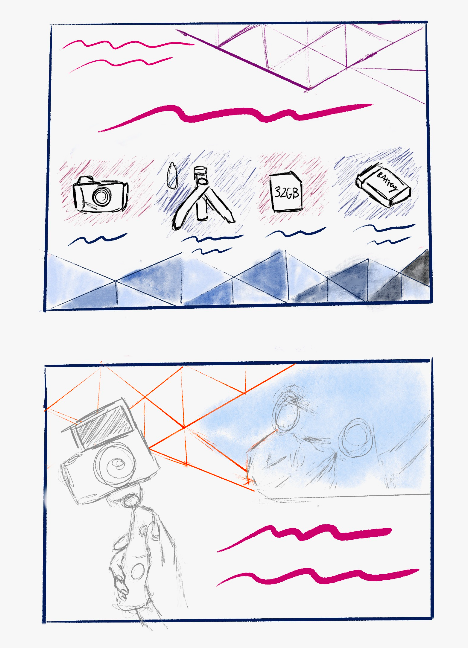 32GB
BATTERY